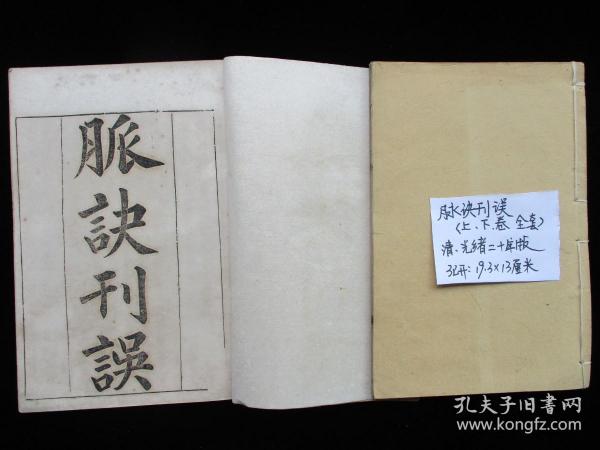 脈訣刊誤
脉诀刊误
(上、下.卷 全套)
清.光緒二十年版
32开: 19.3×13厘米
孔夫子旧书网
www.kongfz.com